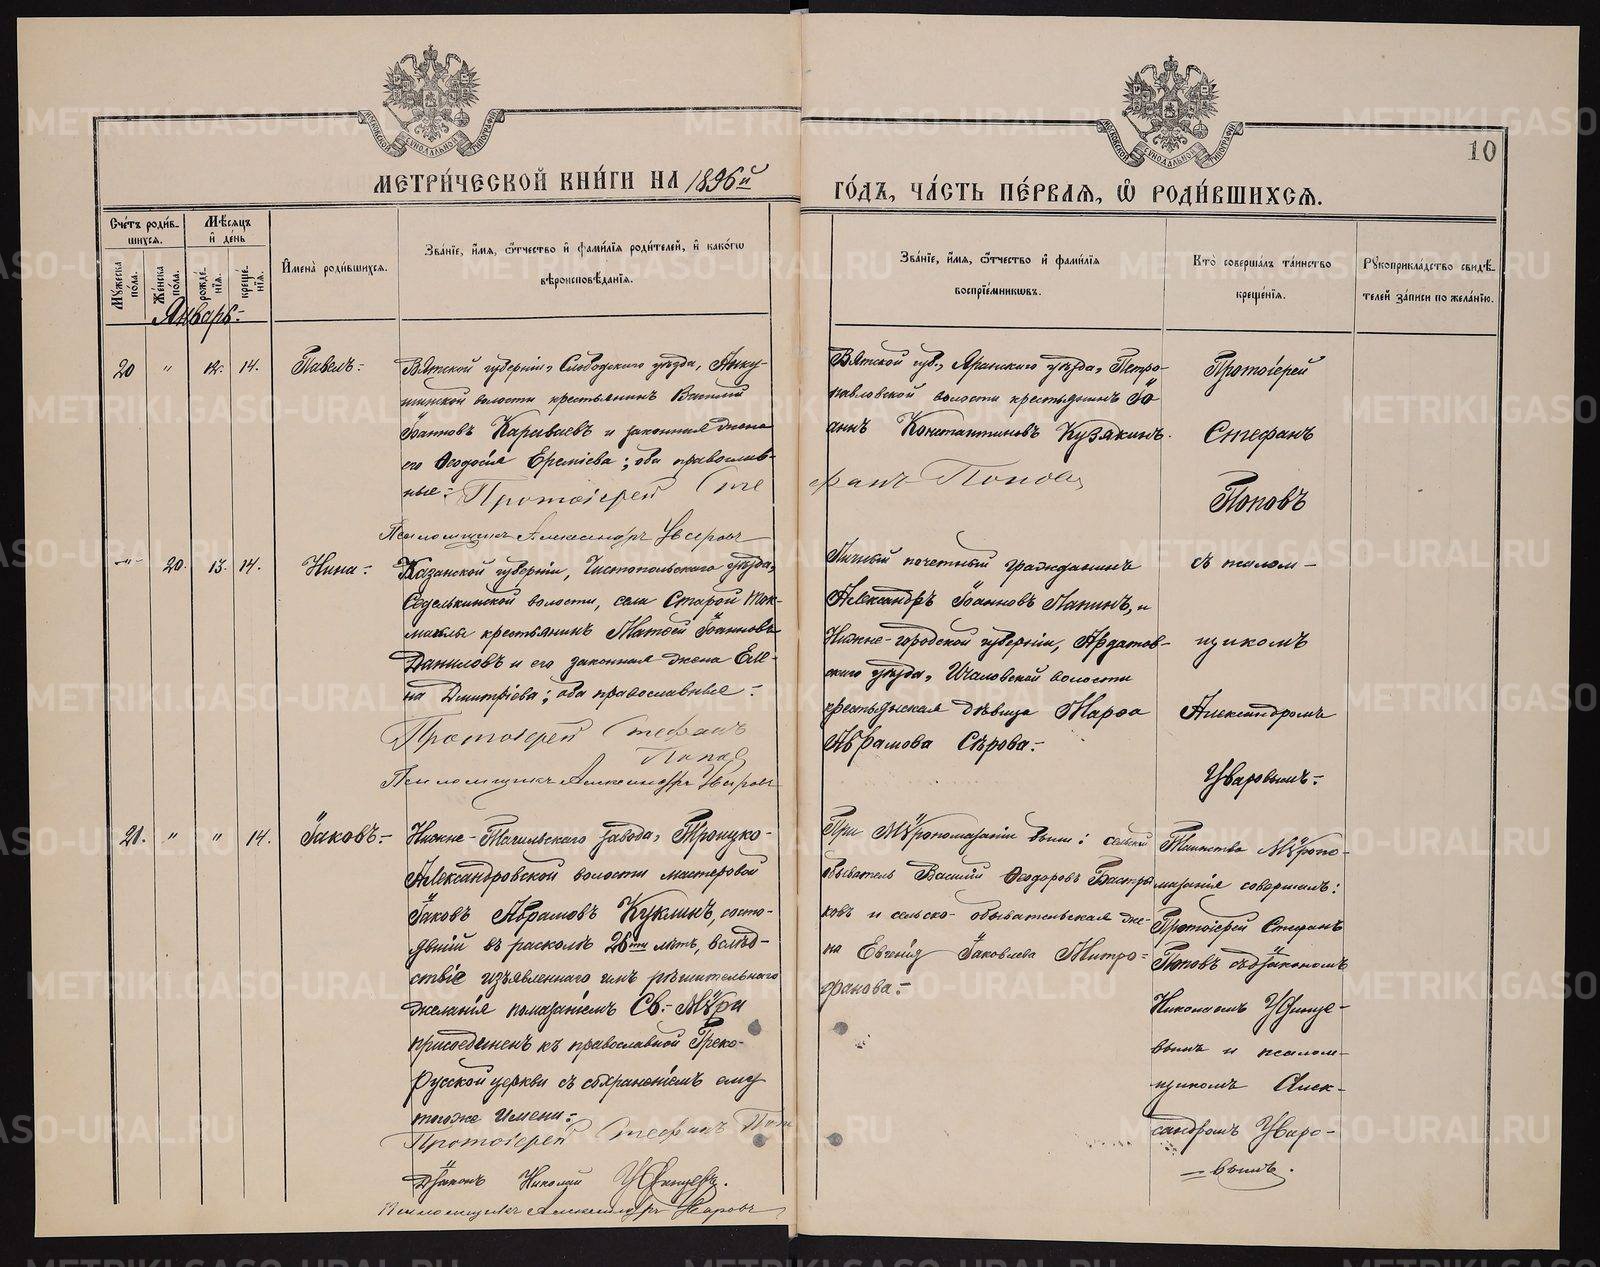 МЕТРИ́ЧЕСКОЙ КНИ́ГИ НА 1896й
ГО́ДЪ, ЧА́СТЬ ПЕ́РВАЯ, Ѡ҆ РОДИ́ВШИХСЯ.
10
Сче́тъ роди́в-
шихся.
Мѣ́сяцъ
и҆ де́нь
Му́жеска по́ла.
Же́нска по́ла.
рожде́нїя.
креще́нїя.
И҆мена̀ роди́вшихся.
Зва́нїе, и҆́мя, ѻ҆́тчество и҆ фами́лїя роди́телей, и҆ како́гѡ
вѣроисповѣ́данїя.
Зва́нїе, и҆́мя, ѻ҆́тчество и҆ фами́лїя
воспрїе́мникѡвъ.
Кто̀ соверша́лъ та́инство
креще́нїя.
Рꙋкоприкла́дство свидѣ́-
телей за́писи по жела́нїю.
Январь
20 " 12. 14. Павелъ
Вятской губерніи, Слободского уѣзда,
волости крестьянинъ Василій
Іоанновъ Караваевъ и законная жена
его Ѳеодосія Ереміева; оба православ-
ные: Протоіерей Сте
фанъ Поповъ
Псаломщикъ Александръ Уваровъ
Вятской губ., Яранскаго уѣзда, Петро-
павловской волости крестьянинъ Іо
аннъ Константиновъ Кузякинъ.
Протоіерей
Стефанъ
Поповъ
" 20. 13. 14. Нина
Казанской губерніи, Чистопольскаго уѣзда,
волости, села Старой Мок-
крестьянинъ Матѳей Іоанновъ
Даниловъ и его законная жена Еле-
на Димитріева; оба православные
Протоіерей Стефанъ
Поповъ
Псаломщикъ Александръ Уваровъ
Личный почетный гражданинъ
Александръ Іоанновъ Папинъ, и
Нижне-городской губерніи, Ардатов-
скаго уѣзда, волости
крестьянская дѣвица Марѳа
Абрамова Сѣрова
съ псалом-
щикомъ
Александромъ
Уваровымъ
21. " " 14. Іаковъ
Нижне-Тагильскаго завода, Троицко-
Александровской волости мастеровой
Іаковъ Абрамовъ Куклинъ, состо-
явшій въ расколѣ 26ти лѣтъ, вслѣд-
ствіе изъявленнаго имъ рѣшительнаго
желанія помазаніемъ Св. Мѵра
присоединенъ къ православной Греко-
Русской церкви съ сохраненіемъ ему
тогоже имени
Протоіерей Стефанъ Поповъ
Діаконъ Николай
Псаломщикъ Александръ Уваровъ
При Мѵропомазаніи были: сельскій
обыватель Василій Ѳеодоровъ Бастры
ковъ и сельско-обывательская же-
на Евгенія Іаковлева Митро-
фанова
Таинство Мѵропо-
мазанія совершилъ:
Протоіерей Стефанъ
Поповъ съ діакономъ
Николаемъ
вымъ и псалом-
щикомъ Алек-
сандромъ Уваро-
вымъ.
METRIKI.GASO-URAL.RU